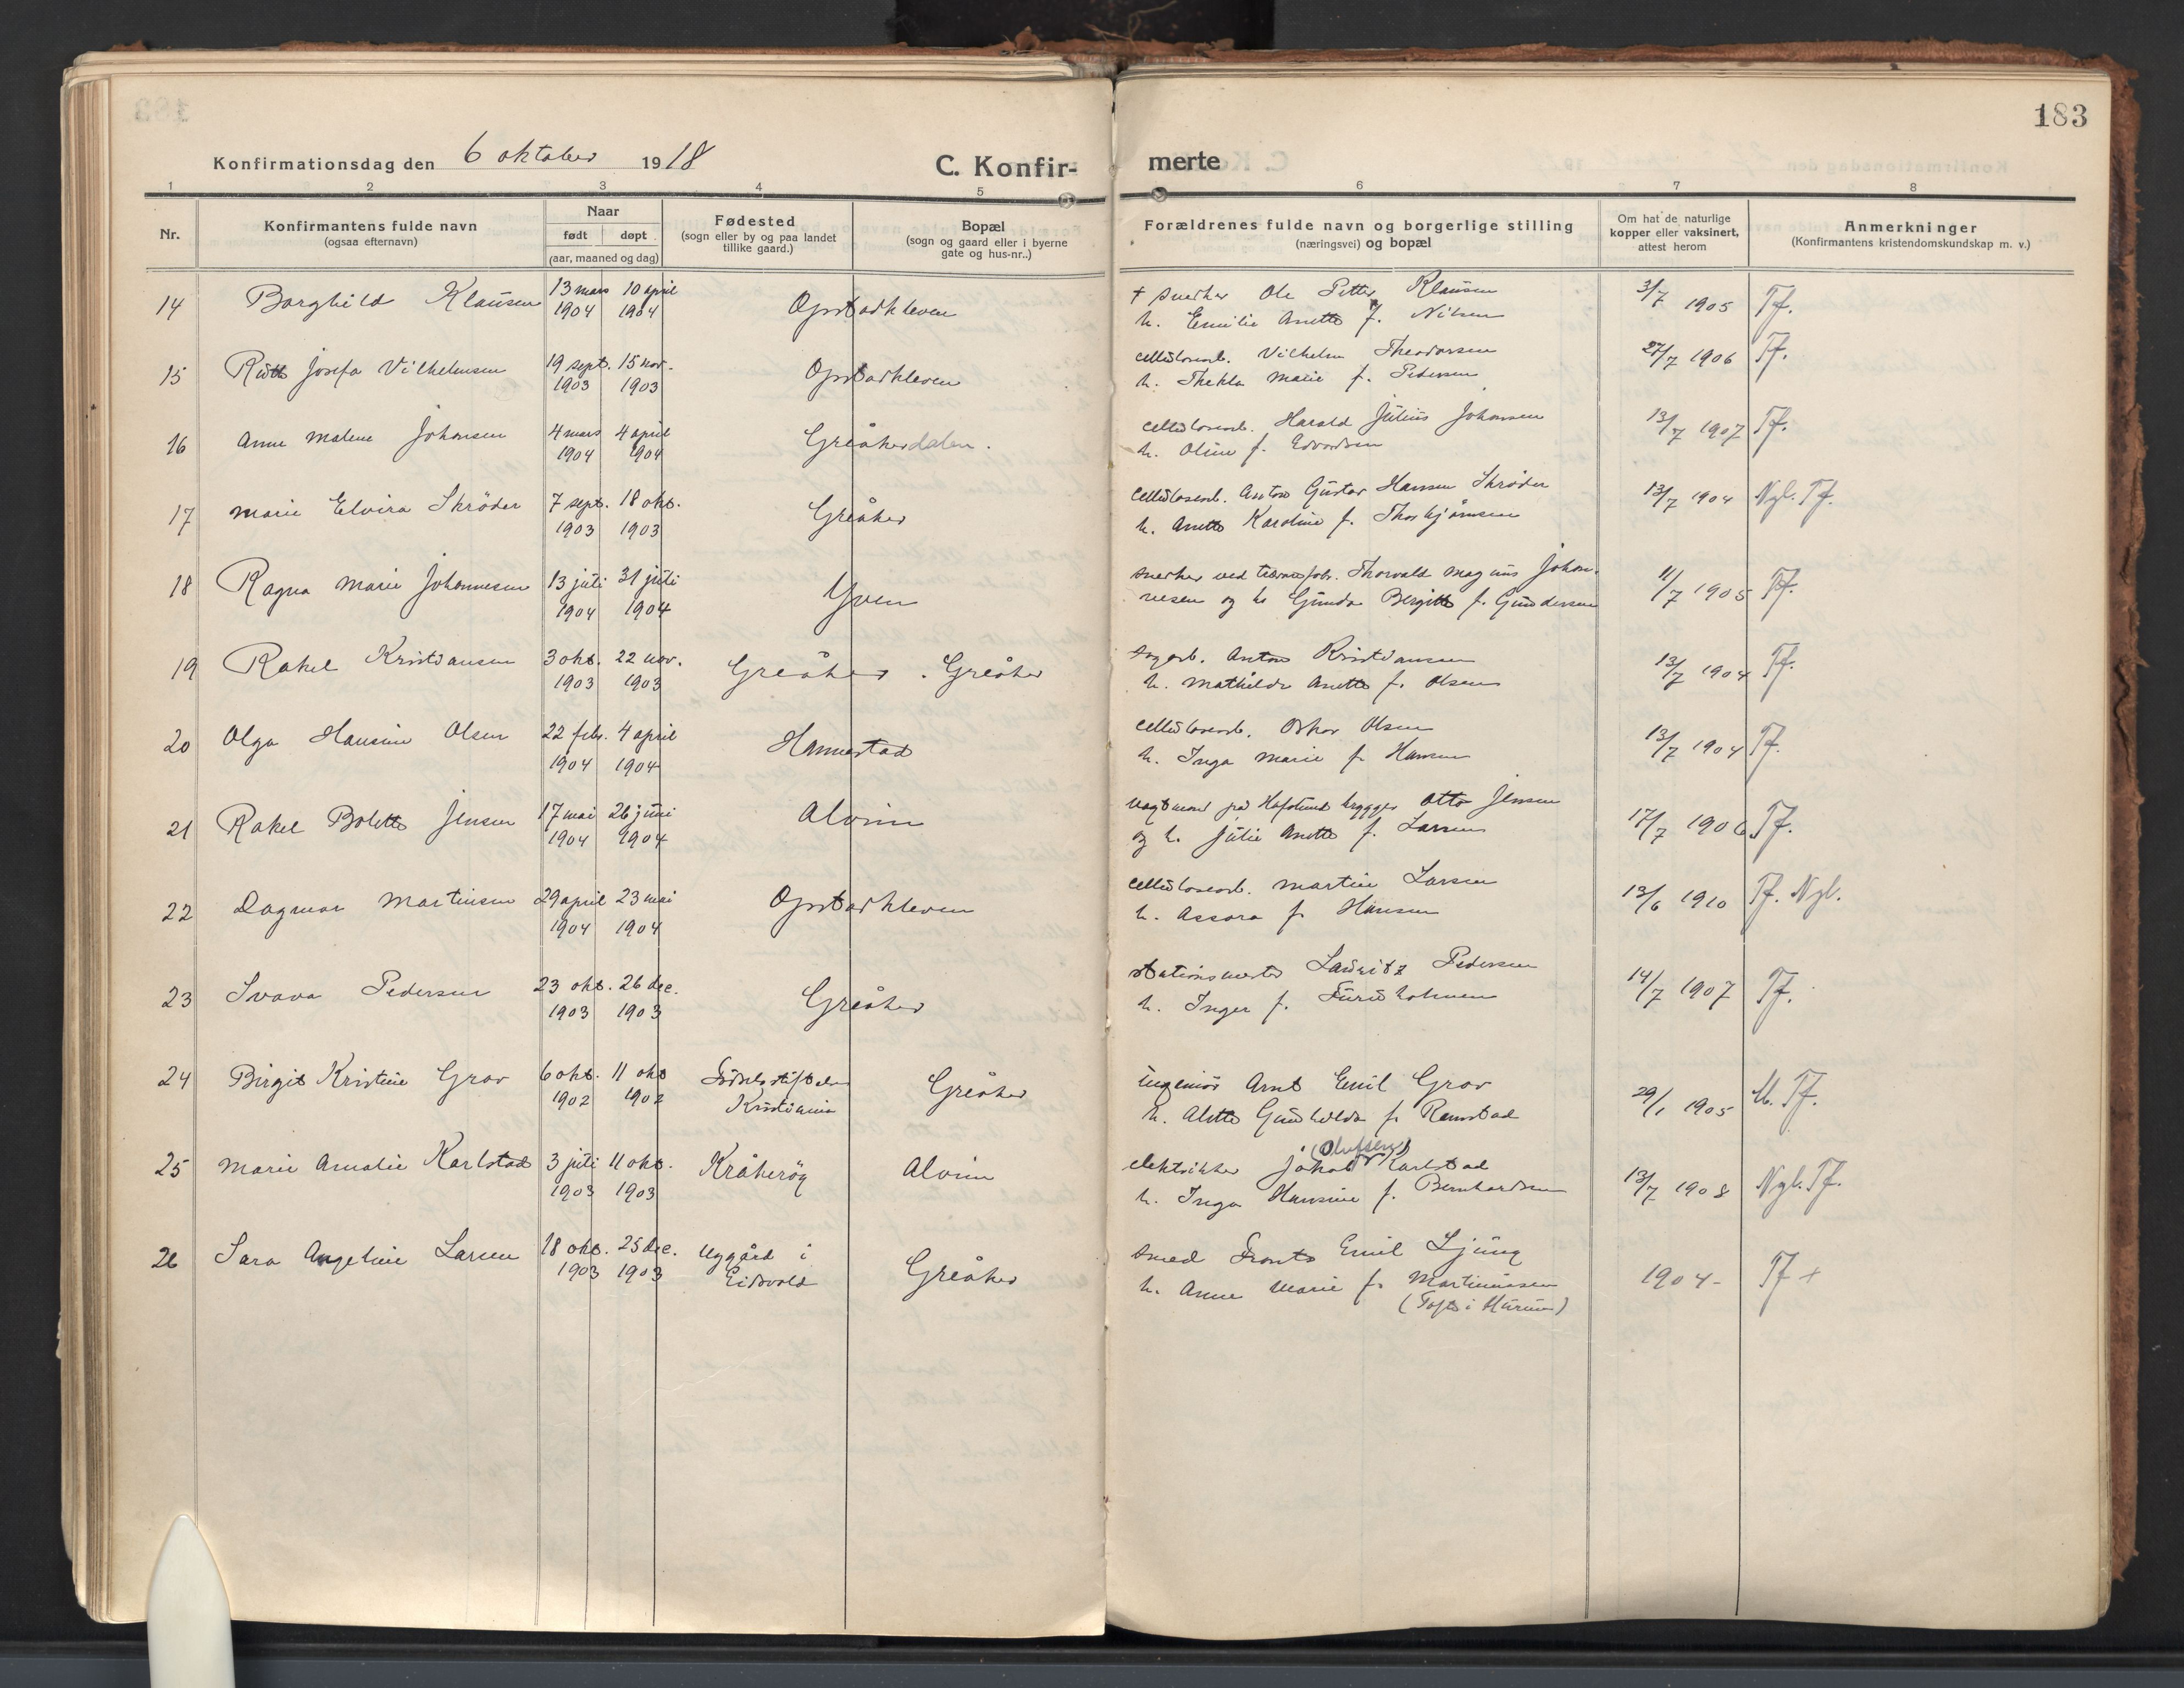 183
Konfirmationsdag den 6 oktober 1918 C. Konfir- merte
1 2 3 4 5 6 7 8
Nr.
Konfirmantens fulde navn
(ogsaa efternavn)
Naar
født døpt
(aar, maaned og dag)
Fødested
(sogn eller by og paa landet
tillike gaard.)
Bopæl
(sogn og gaard eller i byerne
gate og hus-nr..)
Forældrenes fulde navn og borgerlige stilling
(næringsvei) og bopæl
Om hat de naturlige
kopper eller vaksinert,
attest herom
Anmerkninger
(Konfirmantens kristendomskundskap m. v.)
14 Borghild Klausen 13 mars 10 april Opstadkleven + snerker Ole Petter Klausen 3/7 1905 Tf.
1904 1904 h. Emilie Anette f. Nilsen
15 Ruth Josefa Vilhelmsen 19 sept. 15 nov. Opstadkleven cellulosearb. Vilhelm Theodorsen 27/7 1906 Tf.
1903 1903 h. Thekla Marie f. Pedersen
16 Anne Malene Johansen 4 mars 4 april Greåkerdalen. cellulosearb. Harald Julius Johansen 13/7 1907 Tf.
1904 1904 h. Oline f. Edvardsen
17 Marie Elvira Skrøder 7 sept. 18 okt. Greåker cellulosearb. Anton Gustav Hansen Skrøder 13/7 1904 Ngl. Tf.
1903 1903 h. Anette Karoline f. Thorbjørnsen
18 Ragna Marie Johannesen 13 juli 31 juli Yven snerker ved Thorvald Magnus Johan- 11/7 1905 Tf.
1904 1904 nesen og h. Gunda Bergitte f. Gundersen
19 Rakel Kristiansen 3 okt. 22 nov. Greåker . Greåker sagarb. Anton Kristiansen 13/7 1904 Tf.
1903 1903 h. Mathilde Anette f. Olsen
20 Olga Hansine Olsen 22 febr. 4 april Hannestad cellulosearb. Oskar Olsen 13/7 1904 Tf.
1904 1904 h. Inga Marie f. Hansen
21 Rakel Bolette Jensen 17 mai 26 juni Alvim vagtmand på Hafslund brygge Otto Jensen 17/7 1906 Tf.
1904 1904 og h. Julie Anette f. Larsen
22 Dagmar Martinsen 29 april 23 mai Opstadkleven cellulosearb. Martin Larsen 13/6 1910 Tf. Ngl.
1904 1904 h. Assora f. Hansen
23 Svava Pedersen 23 okt. 26 dec. Greåker stationsmester Lauritz Pedersen 14/7 1907 Tf.
1903 1903 h. Inger f. Furuholmen
24 Birgit Kristine Grav 6 okt. 11 okt Fødselsstiftelsen Greåker ingeniør Arnt Emil Grav 29/1 1905 M. Tf.
1902 1902 Kristiania h. Alette Gunhilda f. Ramstad
(Olufsen)
25 Marie Amalie Karlstad 3 juli 11 okt. Kråkerøy Alvim elektriker Jakob Karlstad 13/7 1908 Ngl. Tf.
1903 1903 h. Inga Hansine f. Bernhardsen
26 Sara Angeline Larsen 18 okt. 25 dec. Uggård i Greåker smed Emil Ljung 1904- Tf +
1903 1903 Eidsvold h. Anne Marie f. Martiniussen
(Tofte i Hurum)